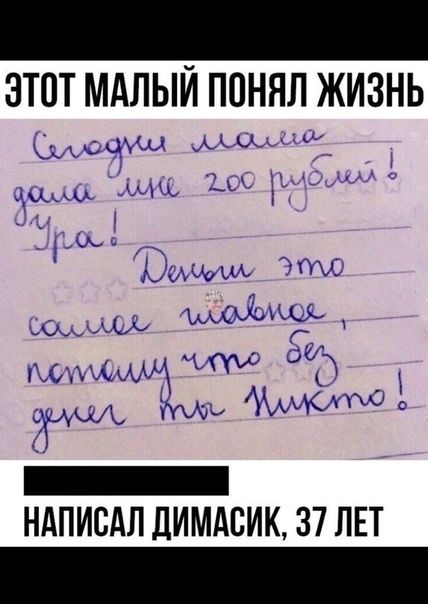 ЭТОТ МАЛЫЙ ПОНЯЛ ЖИЗНЬ
Сегодня мама
дала мне 200 рублей!
Ура!
Деньги это
самое главное,
потому что без
денег ты Никто!
НАПИСАЛ ДИМАСИК, 37 ЛЕТ